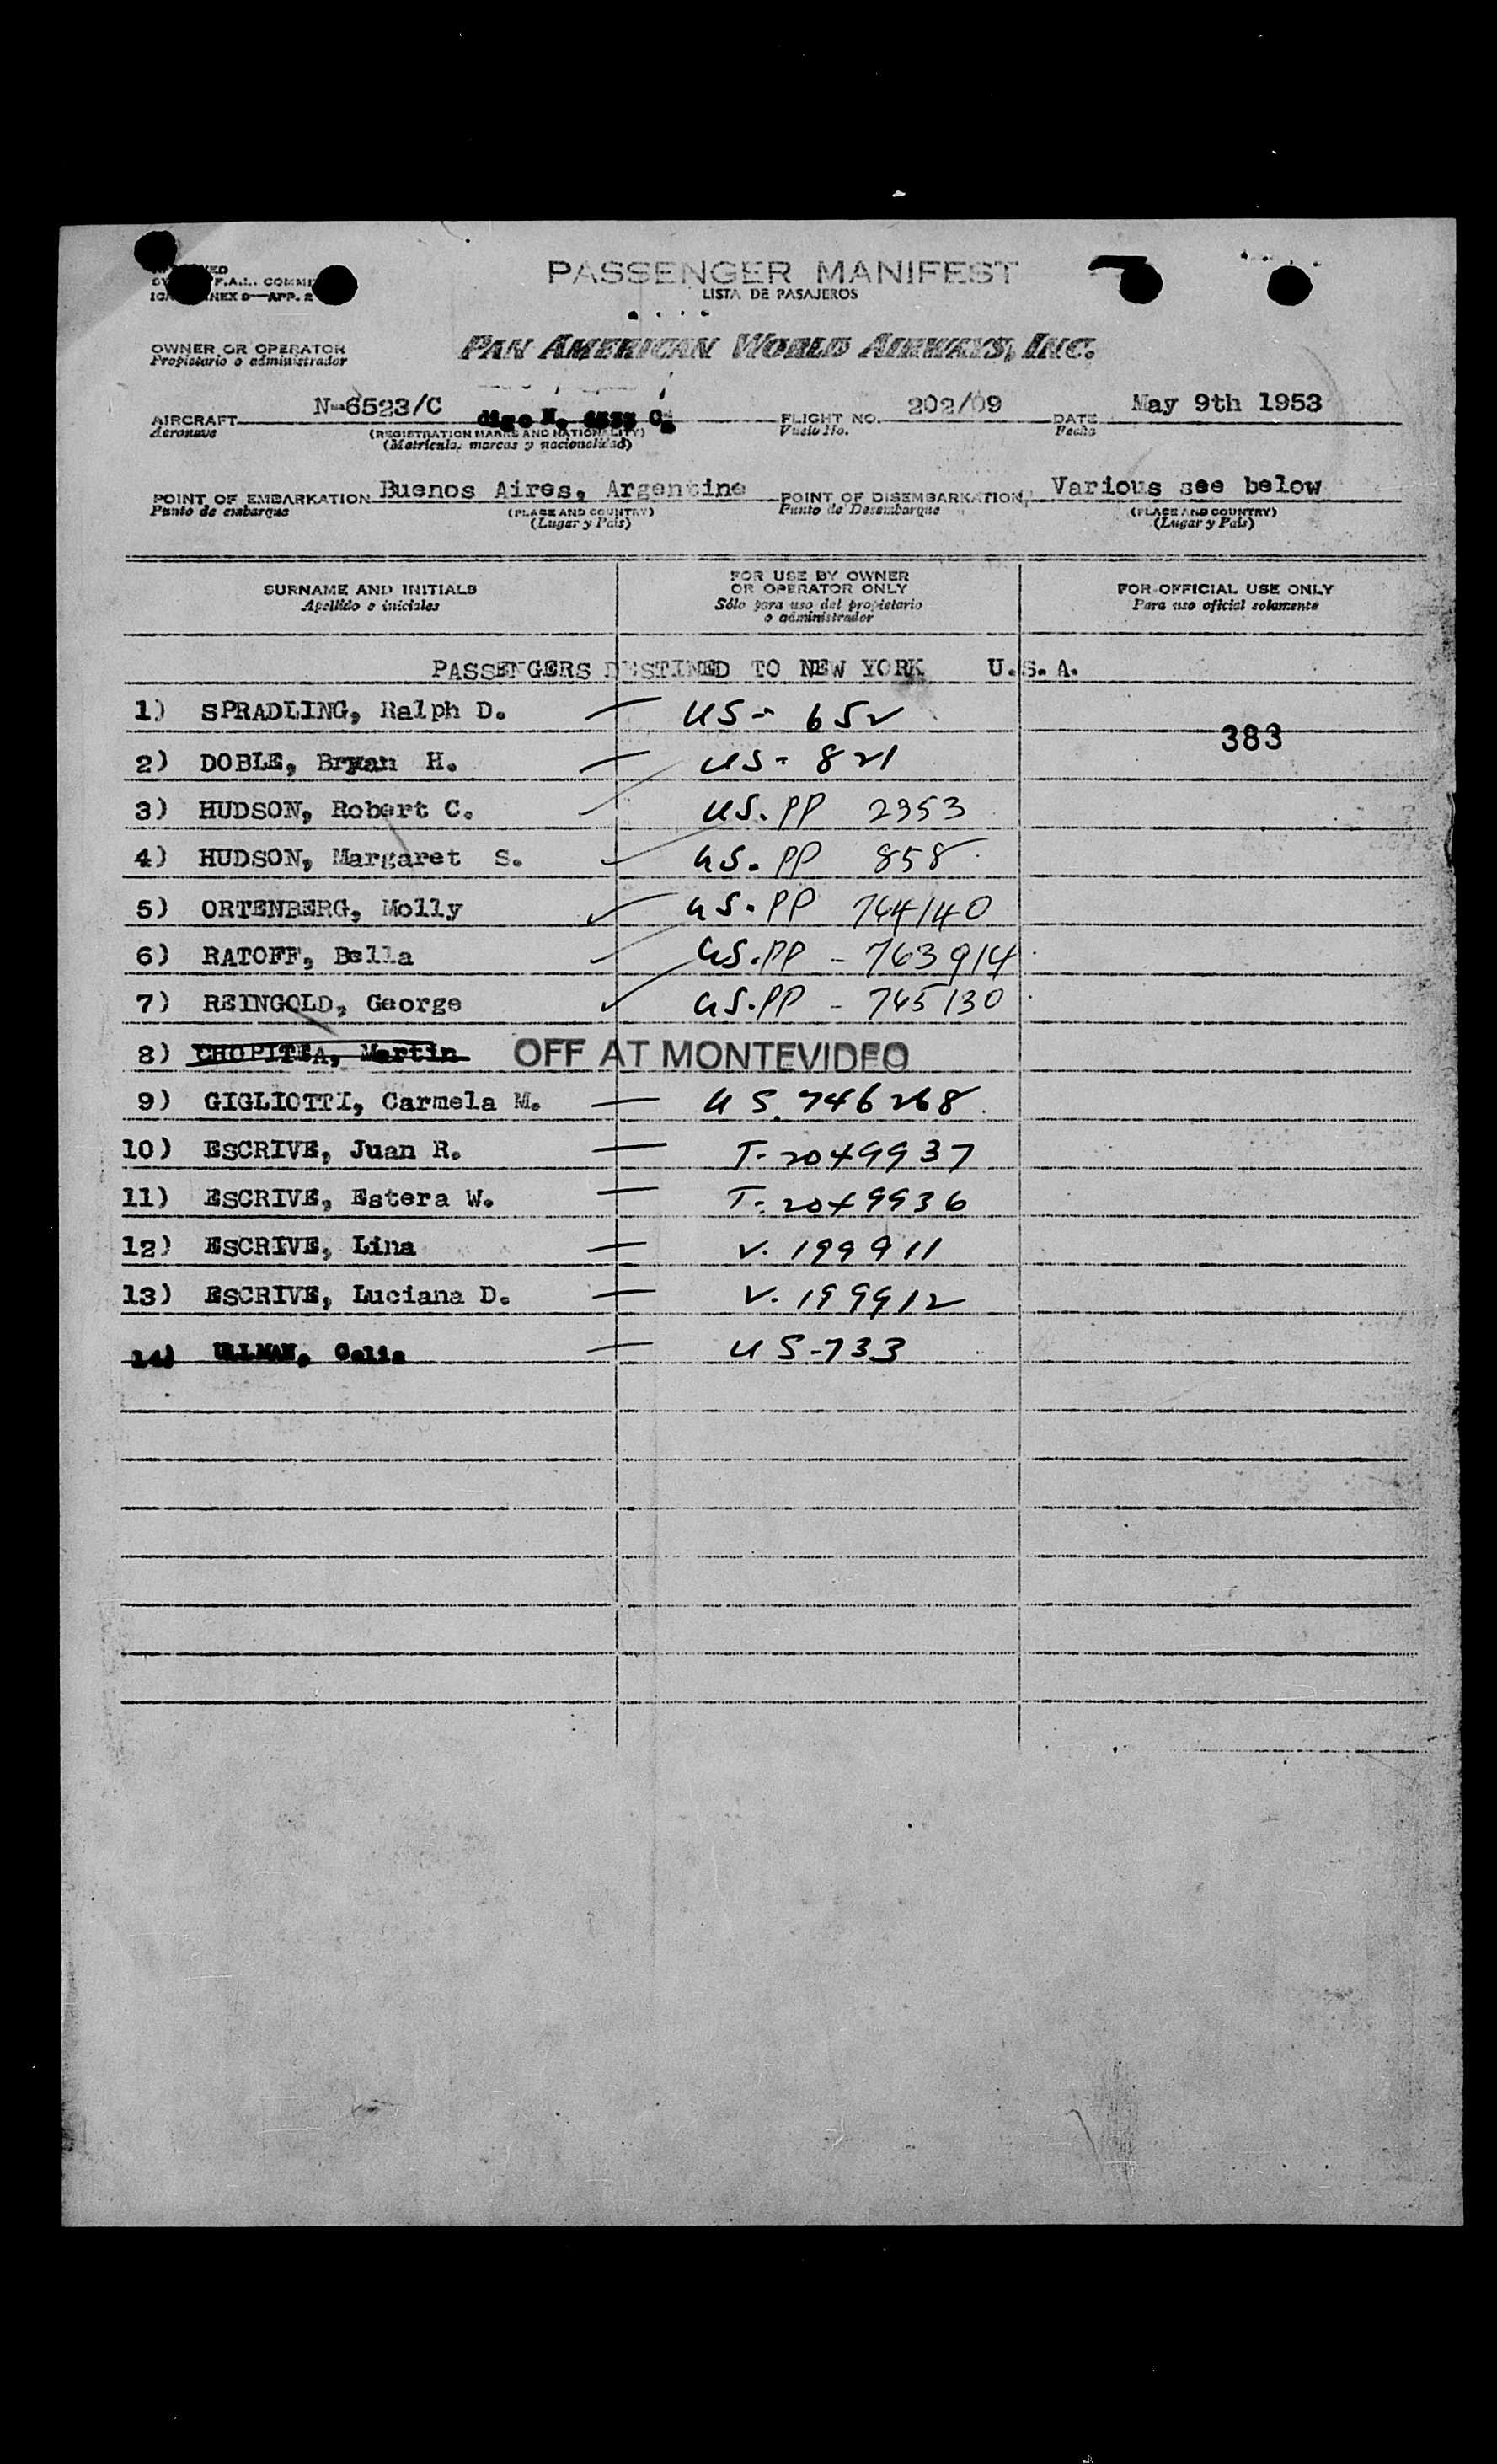 PASSENGER MANIFEST
LISTA DE PASAJEROS
F.A.L. COMMI
NEX 9—APP. 2
OWNER OR OPERATOR
Propietario o administrador
PAN AMERICAN WORLD AIRWAYS, INC.
AIRCRAFT N-6523/C digo N. 6533 C. FLIGHT NO. 202/09 DATE May 9th 1953
Aeronave (REGISTRATION MARKS AND NATIONALITY) Vuelo No. Fecha
(Matricula, marcas y nacionalidad)
POINT OF EMBARKATION Buenos Aires, Argentine POINT OF DISEMBARKATION Various see below
Punto de embarque (PLACE AND COUNTRY) Punto de Desembarque (PLACE AND COUNTRY)
(Lugar y País) (Lugar y País)
SURNAME AND INITIALS FOR USE BY OWNER OR OPERATOR ONLY FOR OFFICIAL USE ONLY
Apellido e iniciales Sólo para uso del propietario o administrador Para uso oficial solamente
PASSENGERS DESTINED TO NEW YORK U.S.A.
1) SPRADLING, Ralph D. — US - 652
383
2) DOBLE, Bryan H. — US - 821
3) HUDSON, Robert C. US. PP 2353
4) HUDSON, Margaret S. US. PP 858
5) ORTENBERG, Molly US. PP 764140
6) RATOFF, Bella US. PP - 763914
7) REINGOLD, George US. PP - 765130
8) CHOPITEA, Martin OFF AT MONTEVIDEO
9) GIGLIOTTI, Carmela M. — US. 746268
10) ESCRIVE, Juan R. — T- 2049937
11) ESCRIVE, Estera W. — T- 2049936
12) ESCRIVE, Lina — V. 199911
13) ESCRIVE, Luciana D. — V. 199912
14) ULLMAN, Celia — US-733